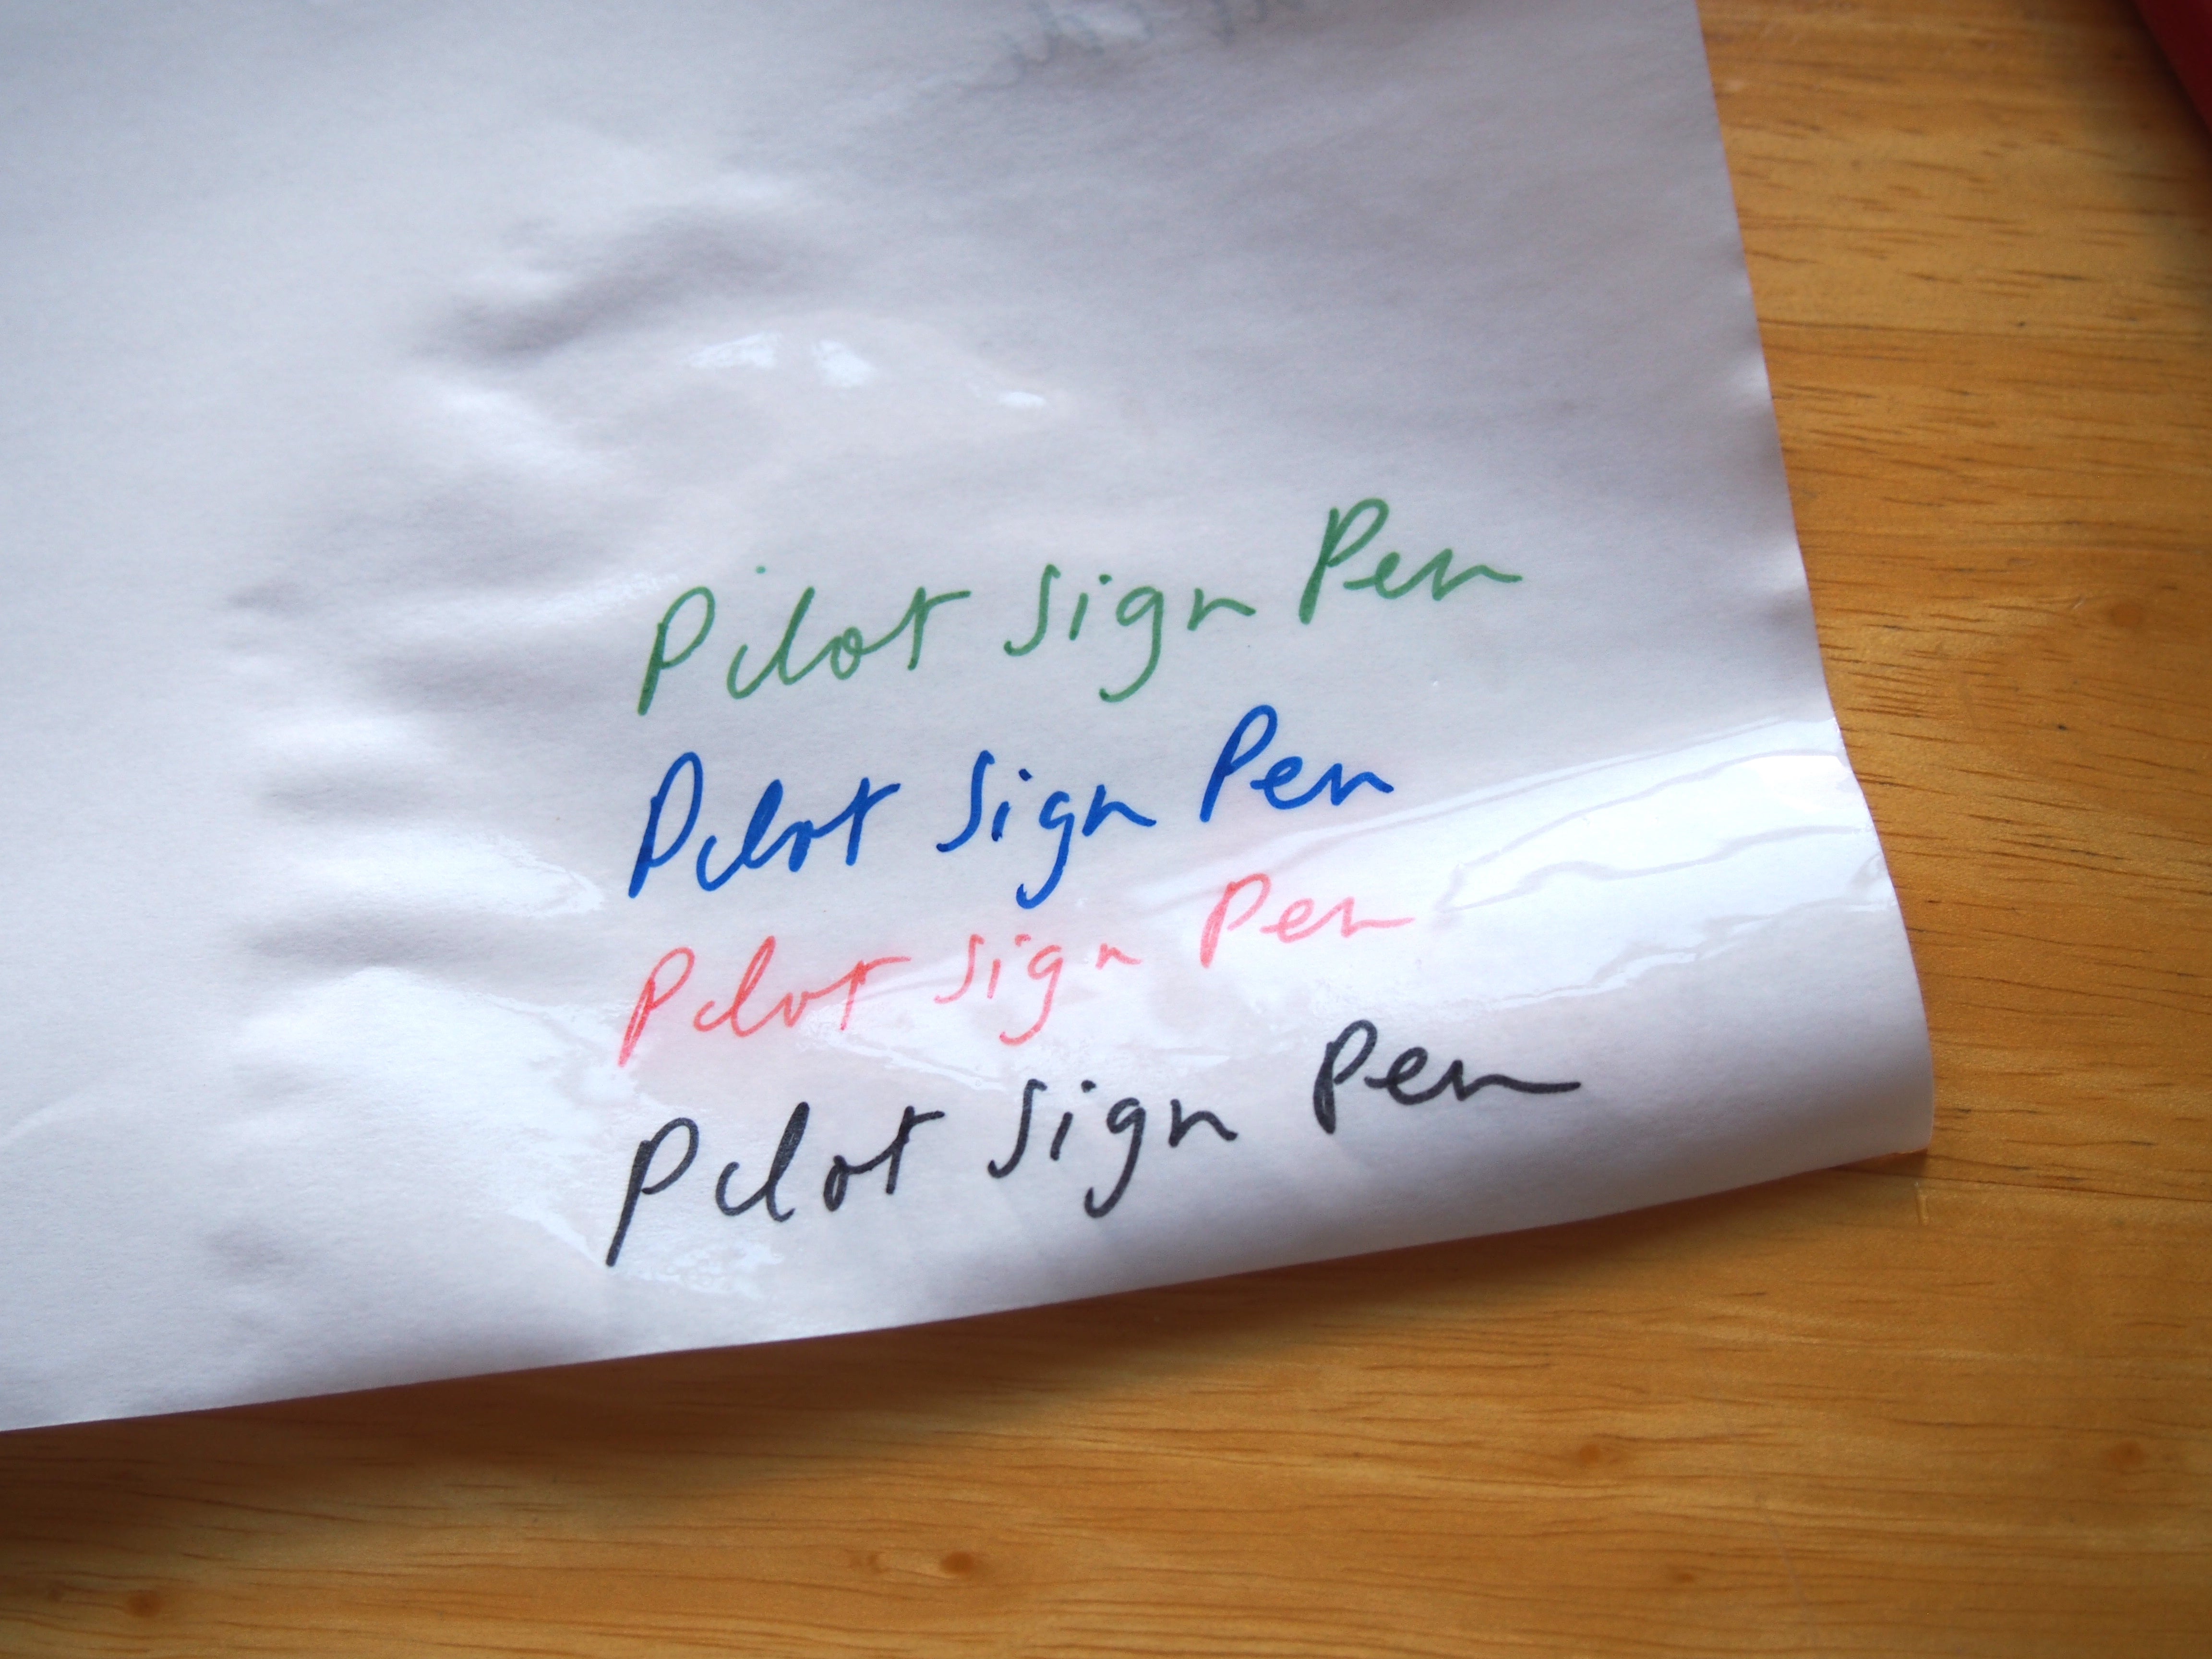 Pilot Sign Pen
Pilot Sign Pen
Pilot Sign Pen
Pilot Sign Pen